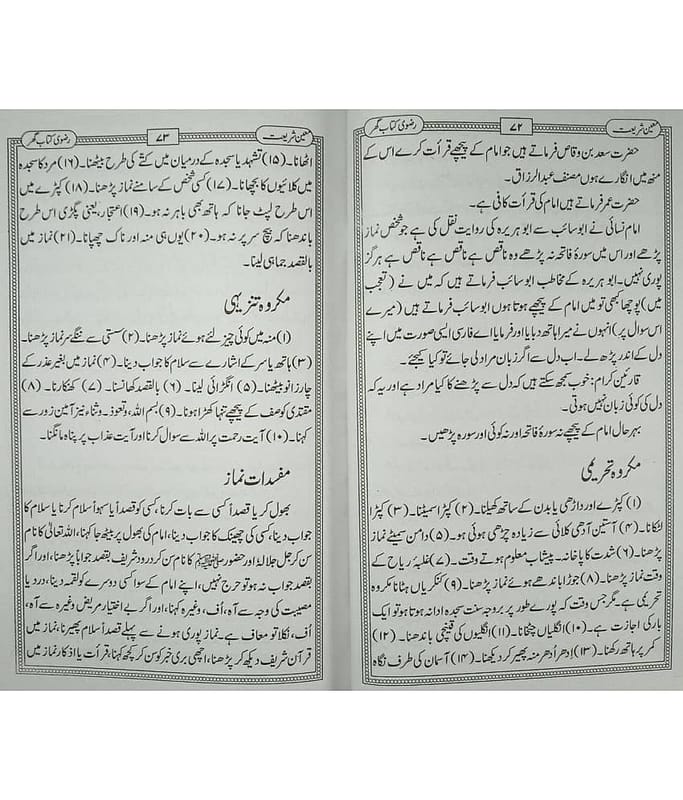 معین شریعت ۷۲ رضوی کتاب گھر
حضرت سعد بن وقاص فرماتے ہیں جو امام کے پیچھے قرأت کرے اس کے
منھ میں انگارے ہوں مصنف عبدالرزاق۔
حضرت عمر فرماتے ہیں امام کی قرأت کافی ہے۔
امام نسائی نے ابو سائب سے ابو ہریرہ کی روایت نقل کی ہے جو شخص نماز
پڑھے اور اس میں سورۂ فاتحہ نہ پڑھے وہ ناقص ہے ناقص ہے ناقص ہے ہرگز
پوری نہیں۔ ابو ہریرہ کے مخاطب ابو سائب فرماتے ہیں کہ میں نے (تعجب
میں) پوچھا کبھی تو میں امام کے پیچھے ہوتا ہوں ابو سائب فرماتے ہیں (میرے
اس سوال پر) انہوں نے میرا ہاتھ دبایا اور فرمایا اے فارسی ایسی صورت میں اپنے
دل کے اندر پڑھ لے۔ اب دل سے اگر زبان مراد لی جائے تو کیا کیجئے۔
قارئین کرام: خوب سمجھ سکتے ہیں کہ دل سے پڑھنے کا کیا مراد ہے اور یہ کہ
دل کی کوئی زبان نہیں ہوتی۔
بہر حال امام کے پیچھے نہ سورۂ فاتحہ اور نہ کوئی اور سورہ پڑھیں۔
مکروہ تحریمی
(۱) کپڑے اور داڑھی یا بدن کے ساتھ کھیلنا۔ (۲) کپڑا سمیٹنا۔ (۳) کپڑا
لٹکانا۔ (۴) آستین آدھی کلائی سے زیادہ چڑھی ہوئی ہو۔ (۵) دامن سمیٹے نماز
پڑھنا۔ (۶) شدت کا پاخانہ۔ پیشاب معلوم ہوتے وقت۔ (۷) غلبۂ ریاح کے
وقت نماز پڑھنا۔ (۸) جوڑا باندھے ہوئے نماز پڑھنا۔ (۹) کنکریاں ہٹانا مکروہ
تحریمی ہے۔ مگر جس وقت کہ پورے طور پر بروجہ سنت سجدہ ادا نہ ہوتا ہو تو ایک
بار کی اجازت ہے۔ (۱۰) انگلیاں چٹخانا۔ (۱۱) انگلیوں کی قینچی باندھنا۔ (۱۲)
کمر پر ہاتھ رکھنا۔ (۱۳) اِدھر اُدھر منہ پھیر کر دیکھنا۔ (۱۴) آسمان کی طرف نگاہ
معین شریعت ۷۳ رضوی کتاب گھر
اٹھانا۔ (۱۵) تشہد یا سجدہ کے درمیان میں کتے کی طرح بیٹھنا۔ (۱۶) مرد کا سجدہ
میں کلائیوں کا بچھانا۔ (۱۷) کسی شخص کے سامنے نماز پڑھنا۔ (۱۸) کپڑے میں
اس طرح لپٹ جانا کہ ہاتھ بھی باہر نہ ہو۔ (۱۹) اعتجار، یعنی پگڑی اس طرح
باندھنا کہ بیچ سر پر نہ ہو۔ (۲۰) یوں ہی منہ اور ناک چھپانا۔ (۲۱) نماز میں
بالقصد جماہی لینا۔
مکروہ تنزیہی
(۱) منہ میں کوئی چیز لئے ہوئے نماز پڑھنا۔ (۲) سستی سے ننگے سر نماز پڑھنا۔
(۳) ہاتھ یا سر کے اشارے سے سلام کا جواب دینا۔ (۴) نماز میں بغیر عذر کے
چار زانو بیٹھنا۔ (۵) انگڑائی لینا۔ (۶) بالقصد کھانسنا۔ (۷) کھنکارنا۔ (۸)
مقتدی کو صف کے پیچھے تنہا کھڑا ہونا۔ (۹) بسم اللہ، وتعوذ۔ وثناء نیز آمین زور سے
کہنا۔ (۱۰) آیت رحمت پر اللہ سے سوال کرنا اور آیت عذاب پر پناہ مانگنا۔
مفسدات نماز
بھول کر یا قصداً کسی سے بات کرنا، کسی کو قصداً یا سہواً سلام کرنا یا سلام کا
جواب دینا، کسی کی چھینک کا جواب دینا، امام کی بھول پر بیٹھ جا کہنا، اللہ تعالیٰ کا نام
سن کر جل جلالہٗ اور حضور ﷺ کا نام سن کر درود شریف بقصد جواباً پڑھنا، اور اگر
بقصد جواب نہ ہو تو حرج نہیں، اپنے امام کے سوا کسی دوسرے کو لقمہ دینا، درد یا
مصیبت کی وجہ سے آہ، اُف، وغیرہ کہنا، اور اگر بے اختیار مریض وغیرہ سے آہ،
اُف، نکلا تو معاف ہے۔ نماز پوری ہونے سے پہلے قصداً سلام پھیرنا، نماز میں
قرآن شریف دیکھ کر پڑھنا، اچھی بری خبر کو سن کر کچھ کہنا، قرأت یا اذکار نماز میں